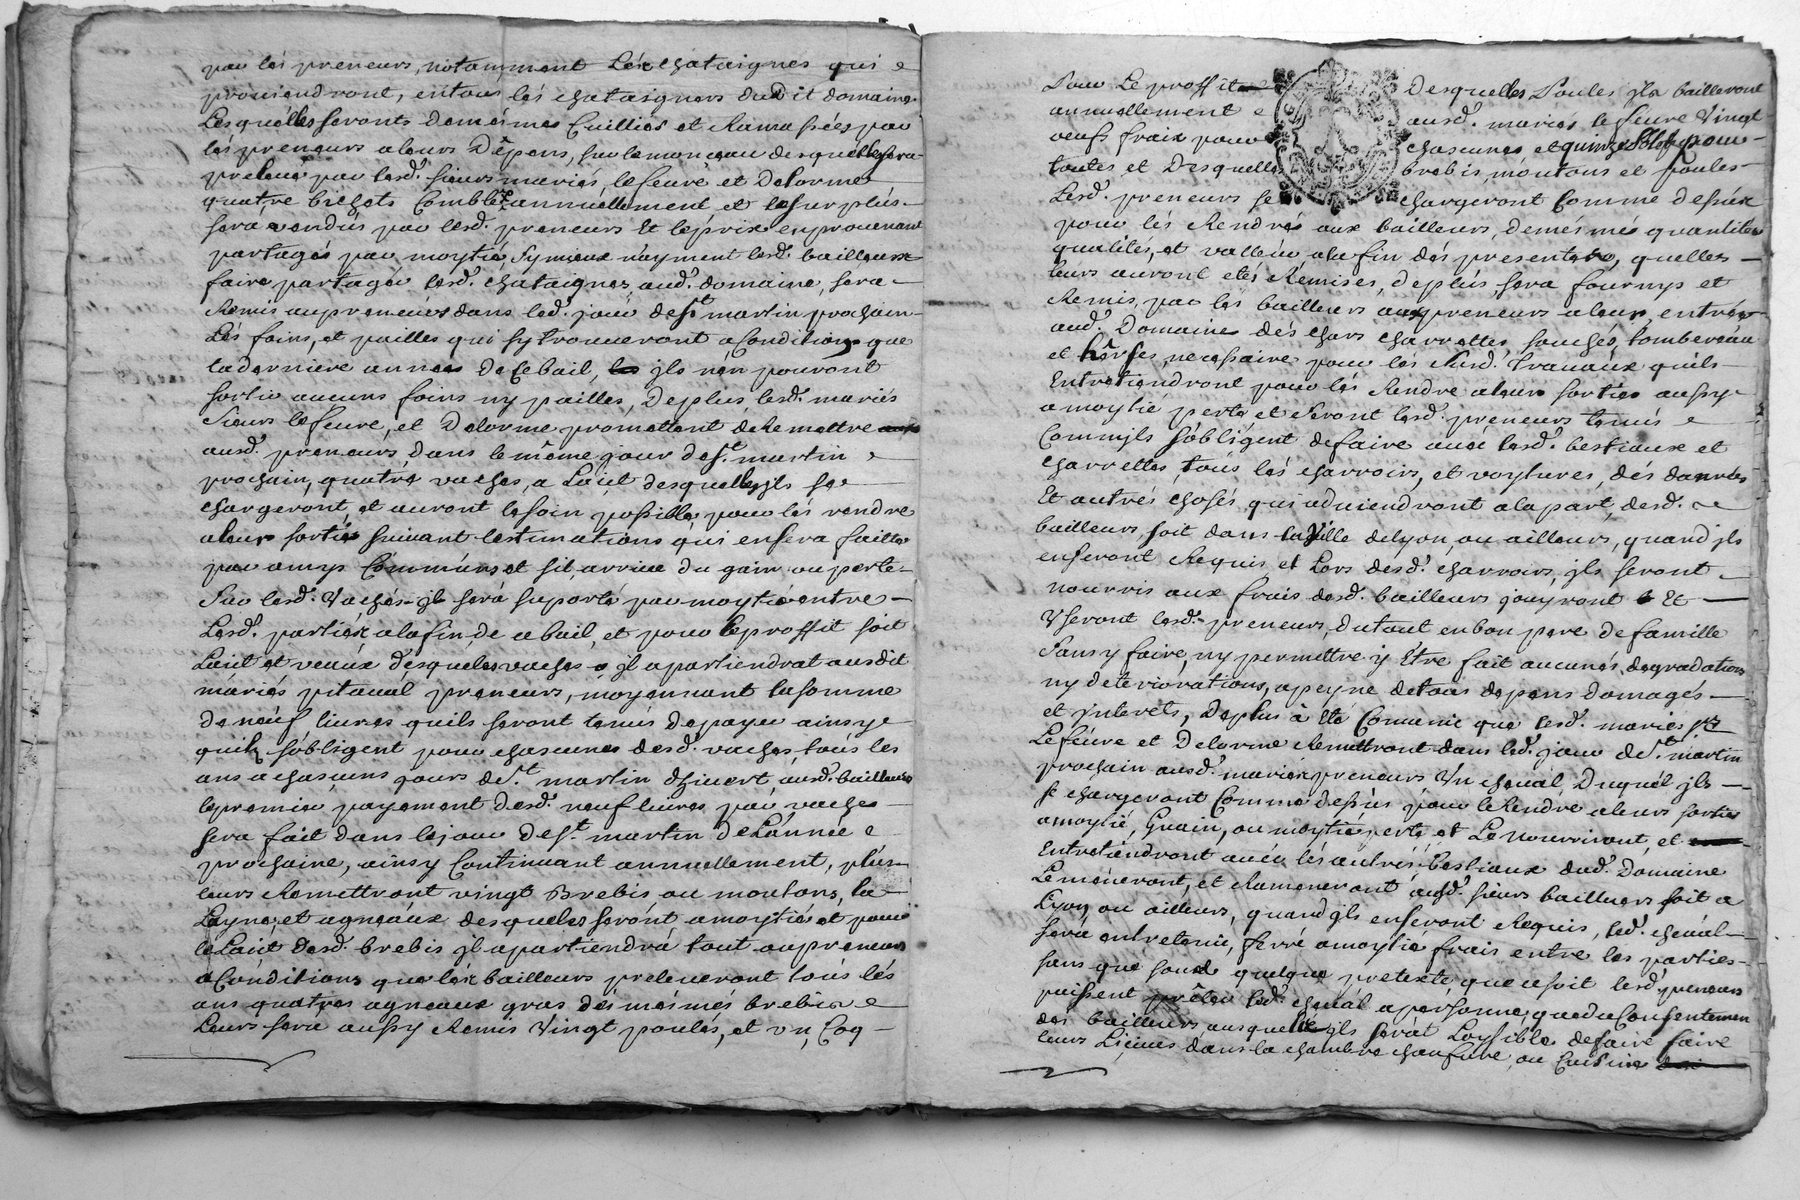 par les preneurs, notamment Les chataignes qui
proviendront, en tous les chataigners dudit domaine
Lesquelles seronts de mesmes Cuilliés et Ramassées par
les preneurs a leurs Dêpens, sur le monceau desquelles sera
prelevé par lesd. sieurs mariés, lefevre et Delorme
quatre bichets Comble annuellement et le surplus
sera vendus par lesd. preneurs Et le prix en provenant
partagés par moytié, sy mieux n'ayment lesd. bailleurs
faire partager lesd. chataignes aud. domaine, sera
Remis aux preneurs dans led. jour de St martin prochain
Les foins, et pailles qui sy trouveront a Condition que
la derniere année De Ce bail, ils n'en pouront
sortir aucuns foins ny pailles, De plus lesd. mariés
Sieurs lefevre, et Delorme promettent de Remettre
ausd. preneurs, Dans le même jour de St martin
prochain, quatre vaches, a Lait desquelles ils se
chargeront, et auront le soin possible, pour les rendre
a leur sortie suivant lestimations qui en sera faitte
par amys Communs et sil, arrive du gain ou perte
Sur lesd. Vaches il sera suporté par moytié entre
Lesd. parties a la fin de ce bail, et pour le proffit soit
Lait et veaux desqueles vaches il apartiendrat ausdit
mariés pitaval preneurs, moyennant la somme
de neuf livres quils seront tenus de payer ainsy
quils sobligent pour chascunes desd. vaches, tous les
ans a chascuns jours de St martin dhivert, ausd. bailleurs
le premier payement Desd. neuf livres par vaches
sera fait dans le jour de St martin de Lannée
prochaine, ainsy Continuant annuellement, plus
leurs Remettront vingt Brebis ou moutons, la
Layne, et agneaux desqueles seront a moytié et pour
le Lait desd. brebis il apartiendra tout aux preneurs
a Conditions que les bailleurs preleveront tous les
ans quatres agneaux gras des mesmes brebis
Leurs sera aussy Remis Vingt poules, et un Coq
Pour Le proffit Desquelles Poules ils bailleront
annuellement ausd. mariés lefevre Vingt
oeufs frais pour chascunes et quinze sols pour
toutes et Desquelles brebis, moutons et Poules
Lesd. preneurs se chargeront Comme dessus
pour les Rendres aux bailleurs, de mesmes quantités
qualités, et valleur a la fin des presentes, quelles
leurs auront etés Remises, de plus sera fournys et
Remis par les bailleurs aux preneurs a leur entrée
aud. Domaine des chars charrettes, tombereau
et hêrses, necessaire pour les susd. travaux quils
Entretiendront pour les Rendre a leur sorties aussy
a moytié perte et seront lesd. preneurs tenus
Comm'ils sobligent de faire avec lesd. bestiaux et
charrettes, tous les charrois, et voytures, des danrées
Et autres choses qui adviendront a la part, desd.
bailleurs, soit dans la Ville de Lyon, ou ailleurs, quand ils
en seront Requis et Lors desd. charrois, ils seront
nourris aux frais desd. bailleurs jouyront Et
Useront lesd. preneurs, du tout en bon pere de famille
Sans y faire, ny permettre y Etre fait aucunes degradations
ny deteriorations, a peyne de tous depens domages
et jnterets, De plus à Eté Convenu que lesd. mariés
Lefevre et Delorme Remettront dans led. jour de St martin
prochain ausd. mariés preneurs Un cheval, Duquel ils
se chargeront Comme dessus pour le Rendre a leurs sorties
a moytié, Guain, ou moytié perte, et Le Nourriront, et
Entretiendront avec les autres Bestiaux dud. Domaine
Le meneront, et Rameneront ausd. sieurs bailleurs soit a
Lyon ou ailleurs, quand ils en seront Requis, led. cheval
sera entretenu, ferré a moytié frais entre les parties
sans que sous quelque pretexte que ce soit lesd. preneurs
puissent prêter led. cheval a personne, que du Consentement
des bailleurs ausquels il serat Loysible de faire faire
leurs dans la chambre chaufure, ou Cuisine